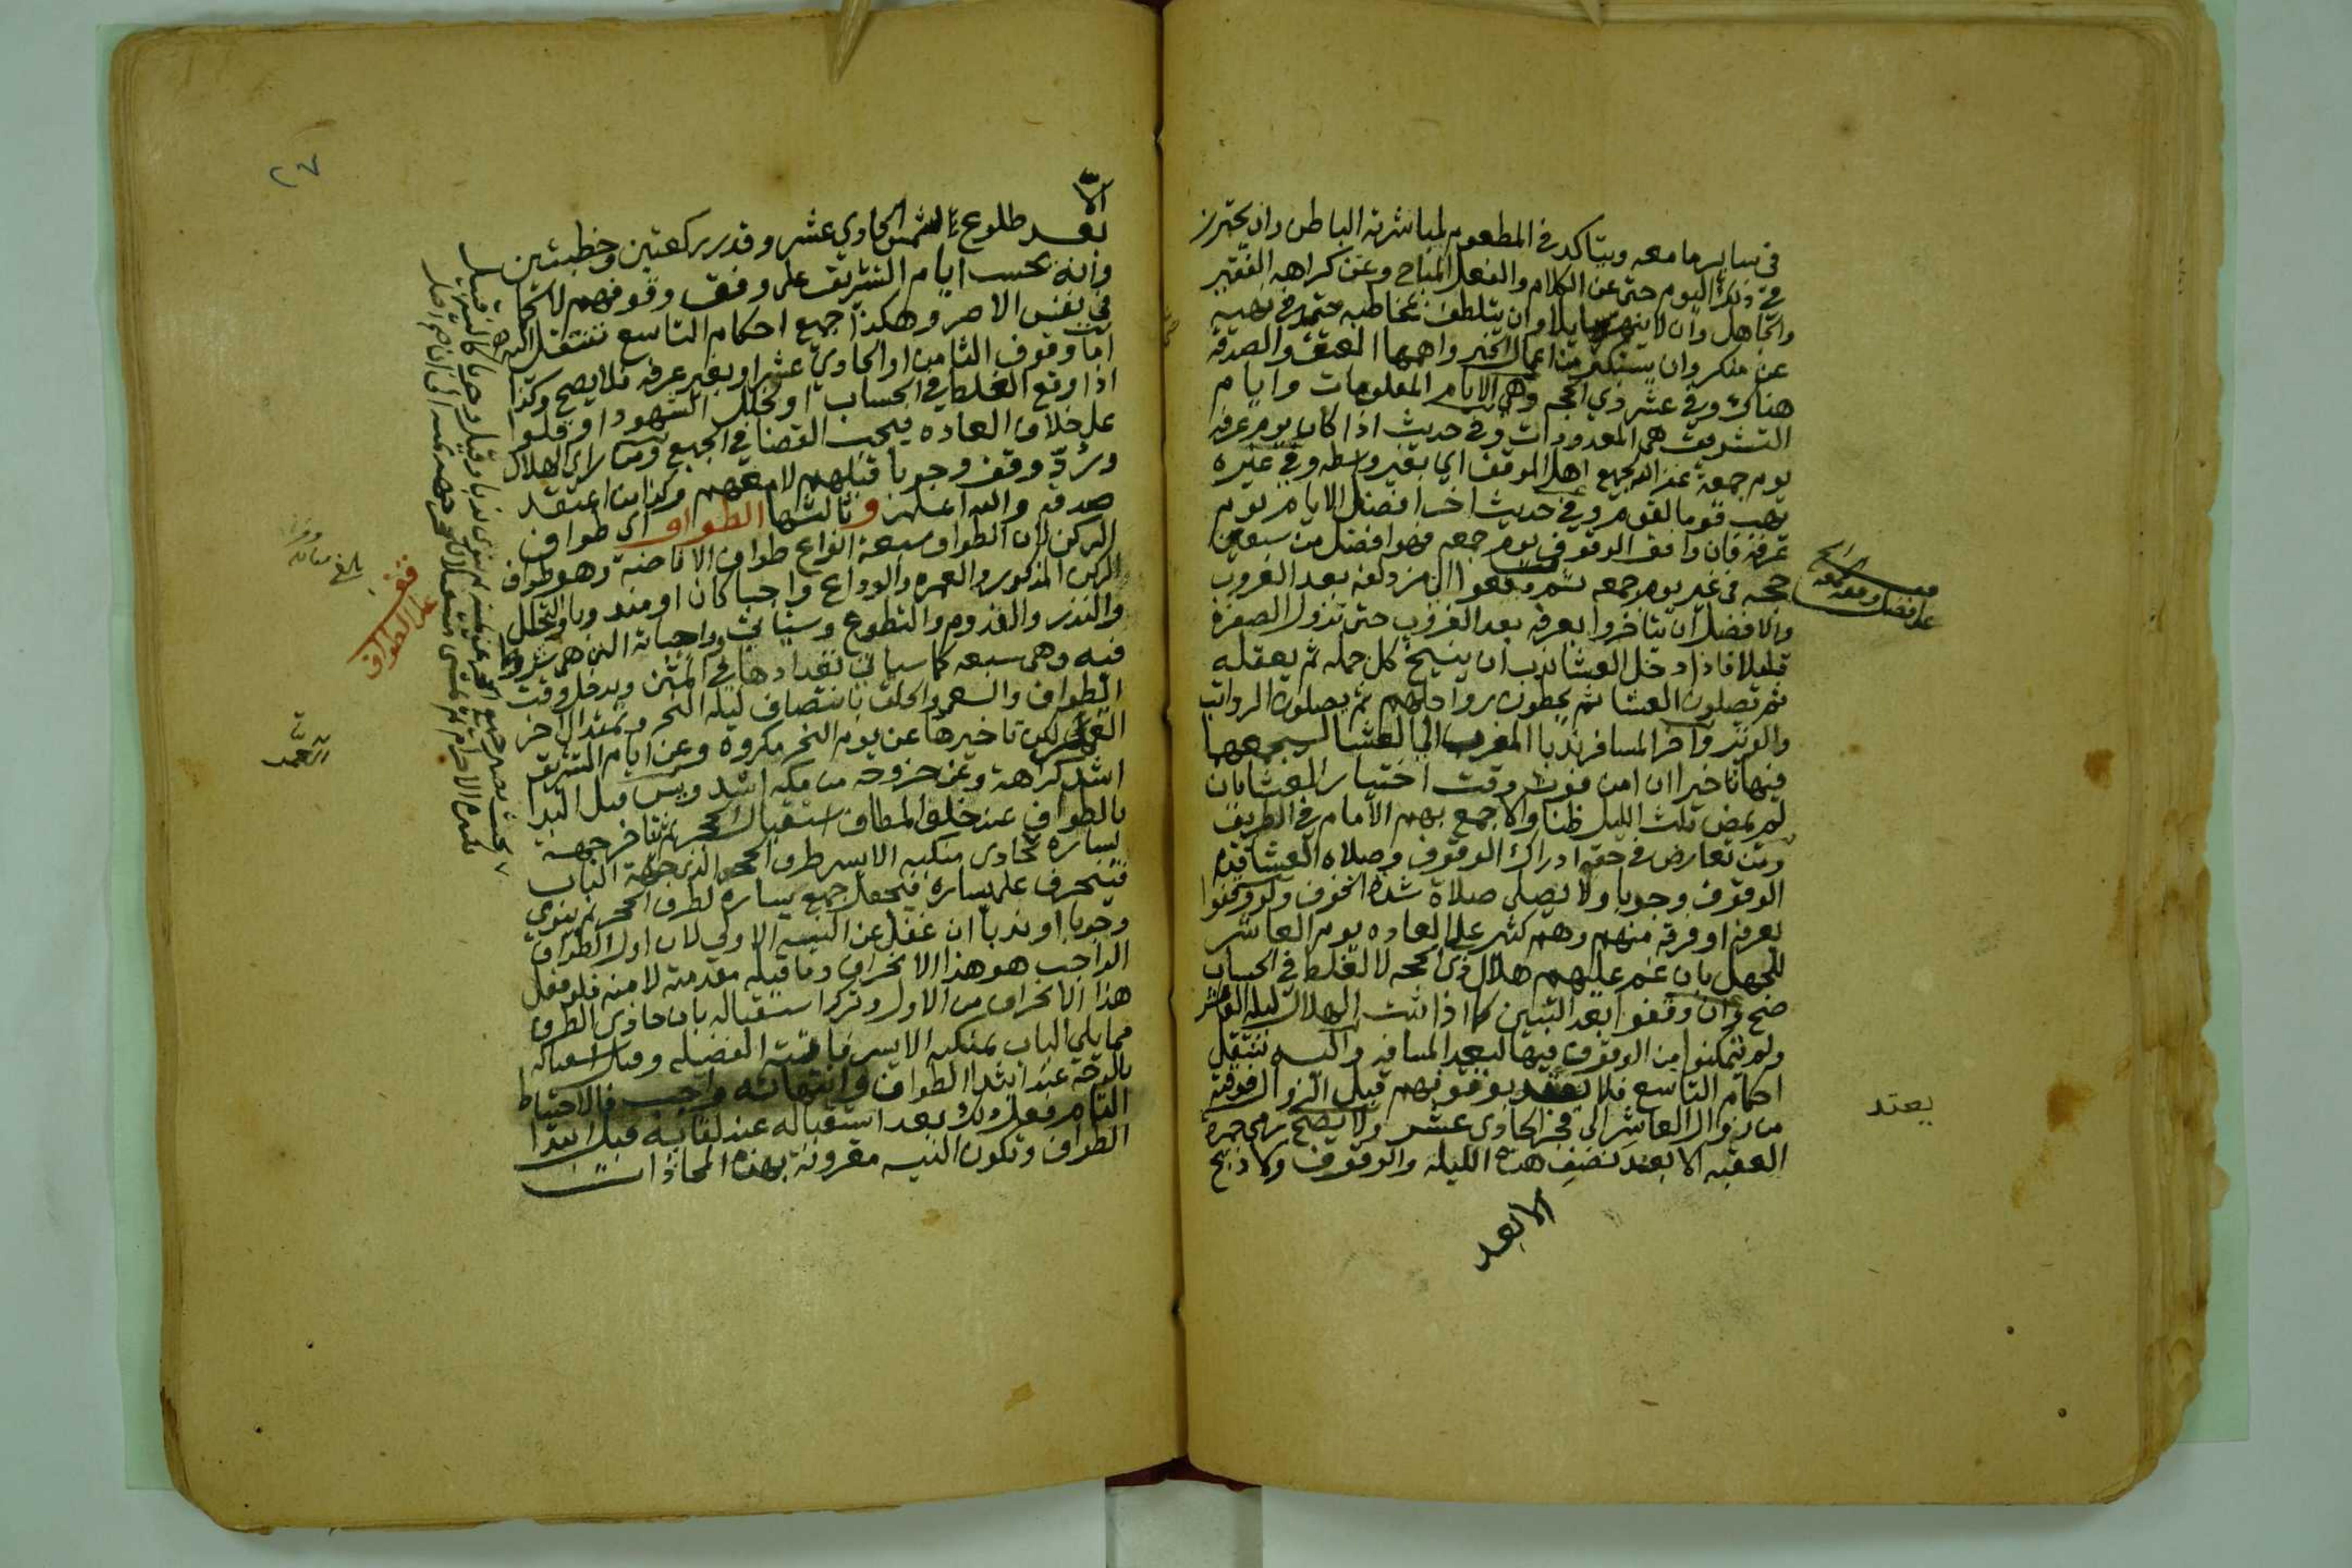 في سائر ما معه ويتأكد في المطعوم لمباشرته الباطن وان يحترز
في ذلك اليوم حتى عن الكلام والفعل المباح وعن كراهه الفقير
والجاهل وان لا ينهر سايلا وان يتلطف بمخاطبه حتى في نهيه
عن منكر وان يستكثر من اعمال الخير واهمها العتق والصدقة
هناك وفي عشر ذي الحجه وهي الايام المعلومات وايام
التشريق هي المعدودات وفي حديث اذا كان يوم عرفه
يوم جمعة غفر الله لجميع اهل الموقف اي بغير واسطه وفي غيره
يهب قوما لقوم وفي حديث اخر افضل الايام يوم
عرفة فان وافق الوقوف يوم جمعه فهو افضل من سبعين
حجه في غير يوم جمعه ثم دفعوا الى مزدلفه بعد الغروب
والافضل ان يتاخروا بعرفه بعد الغروب حتى تزول الصفرة
قليلا فاذا دخل العشا ندب ان ينيخ كل جمله ثم يعقله
ثم يصلون العشا ثم يحطون رواحلهم ثم يصلون الرواتب
والوتر واخر المسافر ندبا المغرب الى العشا ليجمعها
فيها تاخيرا ان امن فوت وقت اختيار العشا بان
لم يمض ثلث الليل ظنا والا جمع بهم الامام في الطريق
ومن تعارض في حقه ادراك الوقوف وصلاه العشا قدم
الوقوف وجوبا ولا يصلي صلاة شدة الخوف ولو وقفوا
بعرفة او فرقة منهم وهم كثير على العاده يوم العاشر
للجهل بان غم عليهم هلال ذي الحجه لا لغلط في الحساب
صح وان وقفوا بعد التبين كما اذا ثبت الهلال ليله العاشر
ولم يتمكنوا من الوقوف فيها لبعد المسافه واليه تنتقل
احكام التاسع فلا يعتد بوقوفهم قبل الزوال فوقته
من زوال العاشر الى فجر الحادي عشر ولا يصح رمي جمرة
العقبه الا بعد نصف هذه الليله والوقوف ولا ذبح
الا بعد
يعتد
٢٧
الا
بعد طلوع الشمس الحادي عشر وقدر ركعتين وخطبتين
وانه تحسب ايام التشريق على وفق وقوفهم لا كما
في نفس الامر وهكذا جميع احكام التاسع تنتقل اليه
اما وقوف الثامن او الحادي عشر او بغير عرفه فلا يصح وكذا
اذا وقع الغلط في الحساب او لخلل الشهود او قلوا
على خلاف العاده فيجب القضا في الجميع ومن راى الهلال
ورد وقف وجوبا قبلهم لا معهم وكذا من اعتقد
صدقه والله اعلم وثالثها الطواف اي طواف
الركن لان الطواف سبعة انواع طواف الافاضة وهو طواف
الركن المذكور والعمره والوداع واجبا كان او مندوبا والتحلل
والنذر والقدوم والتطوع وسياتي وواجباته التي هي شروط
فيه وهي سبعه كما سياتي تعدادها في المتن ويدخل وقت
الطواف والسعي والحلق بانتصاف ليله النحر ويمتد الى اخر
العمر لكن تاخيرها عن يوم النحر مكروه وعن ايام التشريق
اشد كراهة وعن خروجه من مكه اشد ويسن قبل البدا
بالطواف عند خلو المطاف استقبال الحجر ثم يتاخر جهة
يساره يحاذي منكبه الايسر طرف الحجر الذي جهة الباب
فينحرف على يساره فيجعل جميع يساره لطرف الحجر ثم ينوي
وجوبا او ندبا ان غفل عن النيه الاولى لان اول الطواف
الواجب هو هذا الانحراف وما قبله مقدمة لا منه فلو فعل
هذا الانحراف من الاول وترك استقباله بان حاذى الطرف
مما يلي الباب بمنكبه الايسر فاتته الفضيله وقيل استقباله
بالوجه عند ابتدا الطواف وانتهائه واجب فالاحتياط
التام فعل ذلك بعد استقباله عند لقائه قبل ابتدا
الطواف وتكون النيه مقرونة بهذه المحاذاة
قف
على الطواف